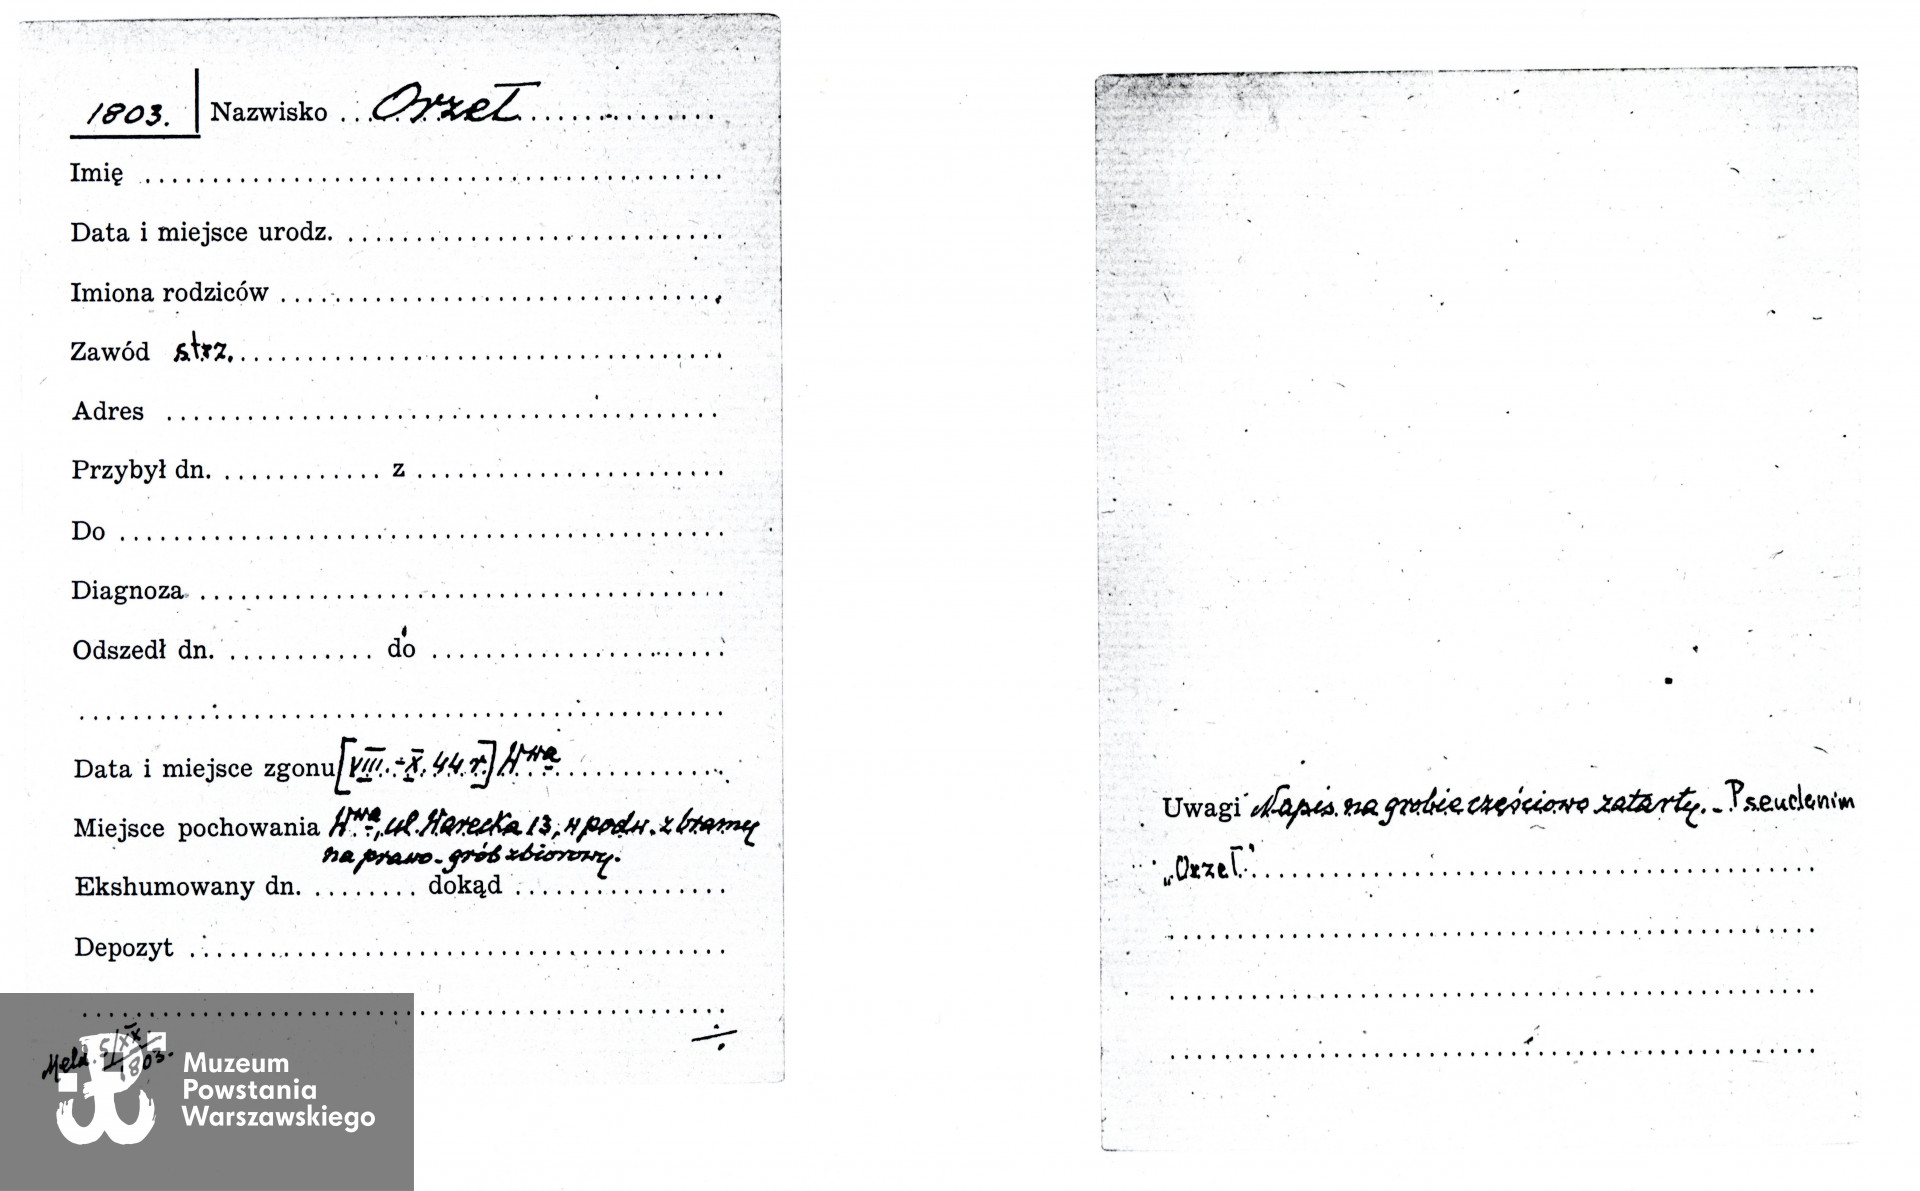 1803. Nazwisko Orzeł
Imię
Data i miejsce urodz.
Imiona rodziców
Zawód strz.
Adres
Przybył dn. z
Do
Diagnoza
Odszedł dn. do
Data i miejsce zgonu [VIII.-X. 44 r.] Wwa
Miejsce pochowania Wwa, ul. Warecka 13, w podw. z bramy
na prawo - grób zbiorowy.
Ekshumowany dn. dokąd
Depozyt
Meld. 5/XX
1803.
Muzeum
Powstania
Warszawskiego
Uwagi Napis na grobie częściowo zatarty. - Pseudonim
„Orzeł."